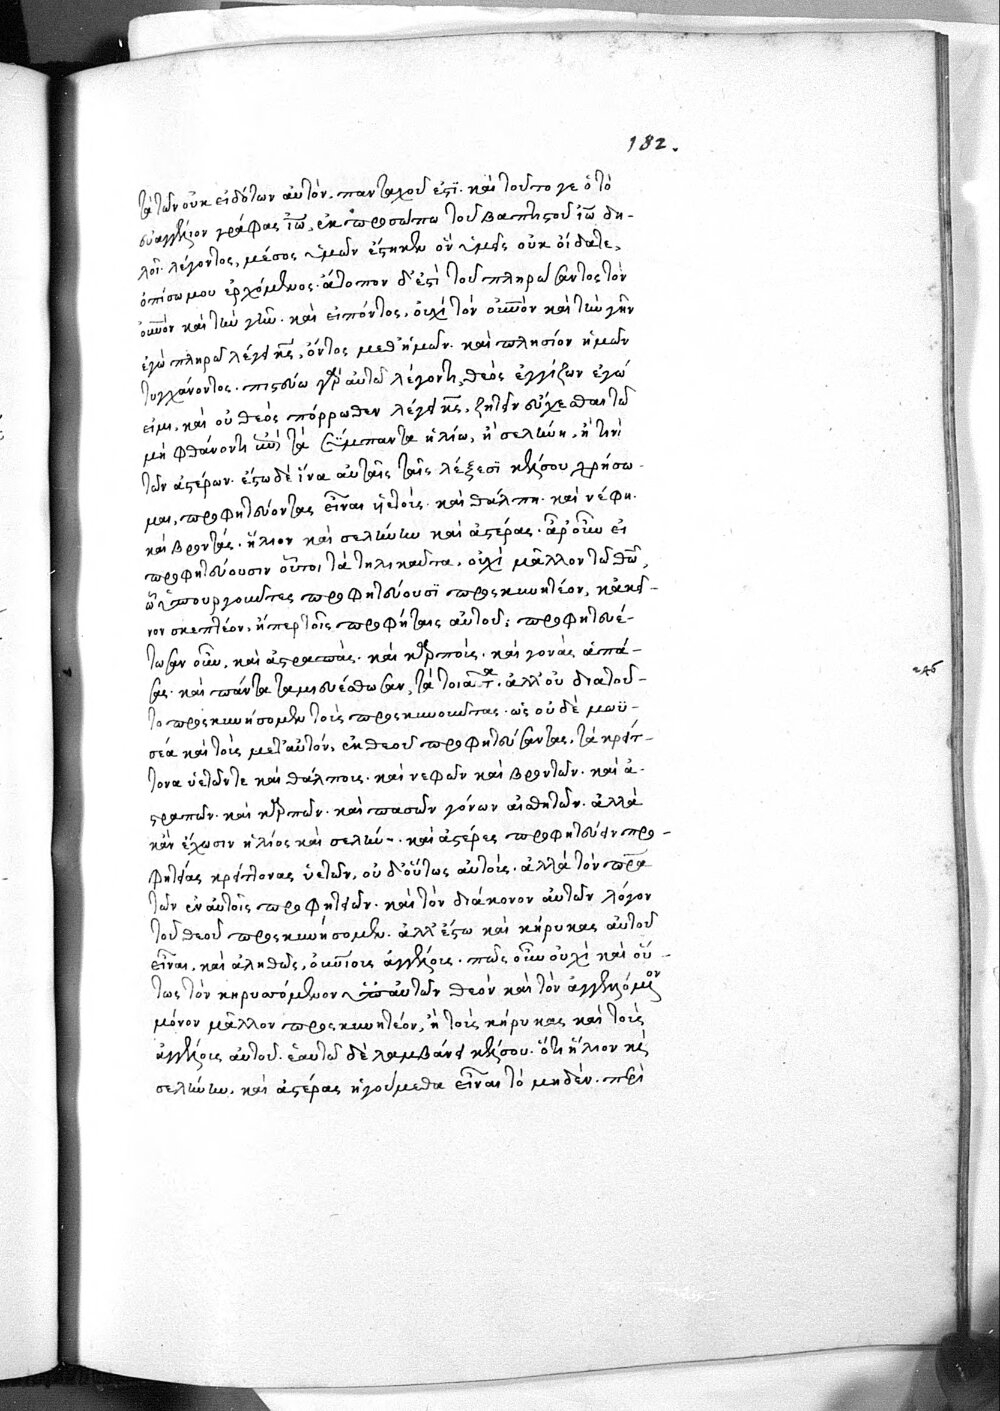 182.
τὰ τῶν οὐκ εἰδότων αὐτόν. πανταχοῦ ἐστὶ. καὶ τοῦτό γε ὁ τὸ
εὐαγγέλιον γράψας ἰω, ἐκ προσώπου τοῦ βαπτιστοῦ ἰω δη-
λοῖ λέγοντος, μέσος ὑμῶν ἔστηκεν ὃν ὑμεῖς οὐκ οἴδατε,
ὀπίσω μου ἐρχόμενος. ἄτοπον δ' ἐστὶ τοῦ πληρώσαντος τὸν
οὐνὸν καὶ τὴν γῆν. καὶ εἰπόντος, οὐχὶ τὸν οὐνὸν καὶ τὴν γῆν
ἐγὼ πληρῶ λέγει κς, ὄντος μεθ' ἡμῶν. καὶ πλησίον ἡμῶν
τυγχάνοντος. πιστεύω γὰρ αὐτῷ λέγοντι, θεὸς ἐγγίζων ἐγώ
εἰμι, καὶ οὐ θεὸς πόρρωθεν λέγει κς, ζητεῖν εὔχεσθαι τῷ
μὴ φθάνοντι ἐπὶ τὰ σύμπαντα ἡλίῳ, ἢ σελήνη, ἤ τινι
τῶν ἀστέρων. ἔστω δὲ ἵνα αὐταῖς ταῖς λέξεσι κέλσου χρήσω-
μαι, προφητεύοντας εἶναι ὑετούς. καὶ θάλπη. καὶ νέφη.
καὶ βροντάς. ἥλιον καὶ σελήνην καὶ ἀστέρας. ἆρ' οὖν εἰ
προφητεύουσιν οὗτοι τὰ τηλικαῦτα, οὐχὶ μᾶλλον τῷ θῶ,
ᾧ ὑπουργοῦντες προφητεύουσι προςκυνητέον, κἀκεῖ-
νον σκεπτέον, ἤπερ τοῖς προφήταις αὐτοῦ; προφητευέ-
τωσαν οὖν, καὶ ἀστραπὰς. καὶ καρποὺς. καὶ γονὰς ἁπά-
σας. καὶ πάντα ταμιευέσθωσαν τὰ τοιαῦτα. ἀλλ' οὐ διὰ τοῦ-
το προςκυνήσομεν τοὺς προςκυνοῦντας. ὡς οὐδὲ μωϋ-
σέα καὶ τοὺς μετ' αὐτόν, ἐκ θεοῦ προφητεύσαντας, τὰ κρείτ-
τονα ὑετῶν τε καὶ θάλπους. καὶ νεφῶν καὶ βροντῶν. καὶ ἀ-
στραπῶν. καὶ καρπῶν. καὶ πασῶν γόνων αἰσθητῶν. ἀλλὰ
κἂν ἔχωσιν ἥλιος καὶ σελήνη. καὶ ἀστέρες προφητεύειν προ-
φητείας κρείττονας ὑετῶν, οὐδ' οὕτως αὐτοὺς. ἀλλὰ τὸν πρα
τῶν ἐν αὐτοῖς προφητειῶν. καὶ τὸν διάκονον αὐτῶν λόγον
τοῦ θεοῦ προςκυνήσομεν. ἀλλ' ἔστω καὶ κήρυκας αὐτοῦ
εἶναι, καὶ ἀληθῶς, οὐνίους ἀγγέλους. πῶς οὖν οὐχὶ καὶ οὕ-
τως τὸν κηρυσσόμενον ὑπ' αὐτῶν θεὸν καὶ τὸν ἀγγελόμενον
μόνον μᾶλλον προςκυνητέον, ἢ τοὺς κήρυκας καὶ τοὺς
ἀγγέλους αὐτοῦ. ἑαυτῷ δὲ λαμβάνει κέλσου. ὅτι ἥλιον καὶ
σελήνην. καὶ ἀστέρας ἡγούμεθα εἶναι τὸ μηδέν. περὶ